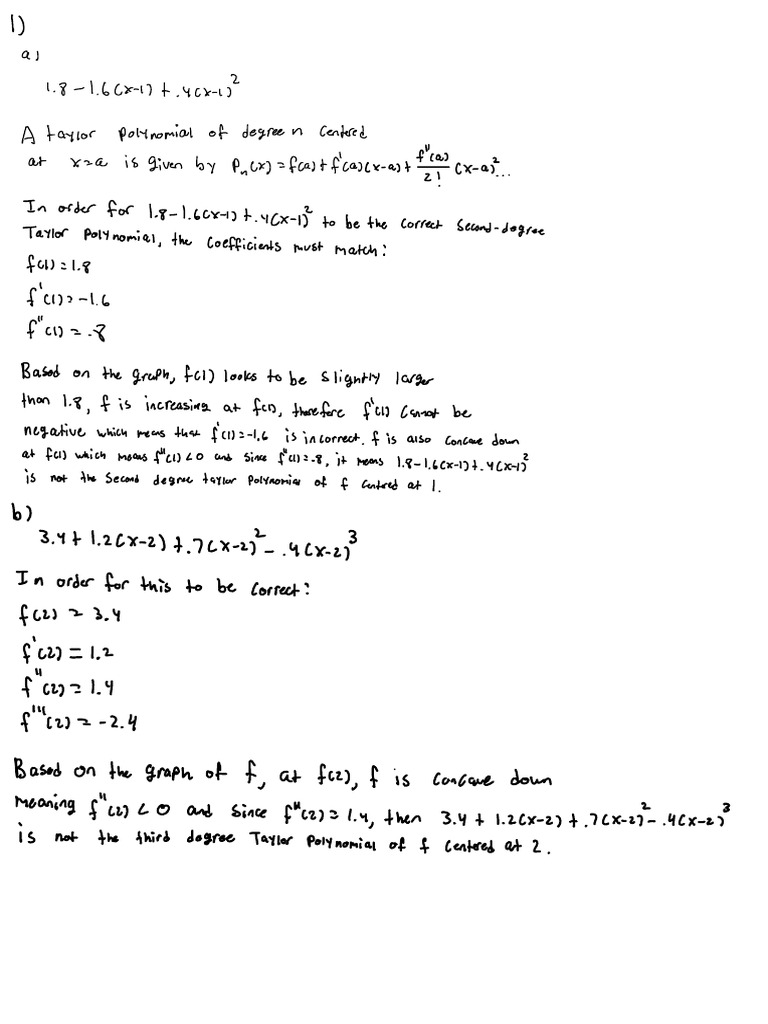 1)
a)
1.8 - 1.6(x-1) + .4(x-1)²
A taylor polynomial of degree n centered
at x=a is given by Pₙ(x) = f(a) + f'(a)(x-a) + f''(a)/2! (x-a)²...
In order for 1.8-1.6(x-1)+.4(x-1)² to be the correct second-degree
Taylor polynomial, the coefficients must match:
f(1) = 1.8
f'(1) = -1.6
f''(1) = .8
Based on the graph, f(1) looks to be slightly larger
than 1.8, f is increasing at f(1), therefore f'(1) cannot be
negative which means that f'(1)=-1.6 is incorrect. f is also concave down
at f(1) which means f''(1)<0 and since f''(1)=.8, it means 1.8-1.6(x-1)+.4(x-1)²
is not the second degree taylor polynomial of f centered at 1.
b)
3.4 + 1.2(x-2) + .7(x-2)² - .4(x-2)³
In order for this to be correct:
f(2) = 3.4
f'(2) = 1.2
f''(2) = 1.4
f'''(2) = -2.4
Based on the graph of f, at f(2), f is concave down
meaning f''(2) < 0 and since f''(2) = 1.4, then 3.4 + 1.2(x-2) + .7(x-2)² - .4(x-2)³
is not the third degree Taylor polynomial of f centered at 2.